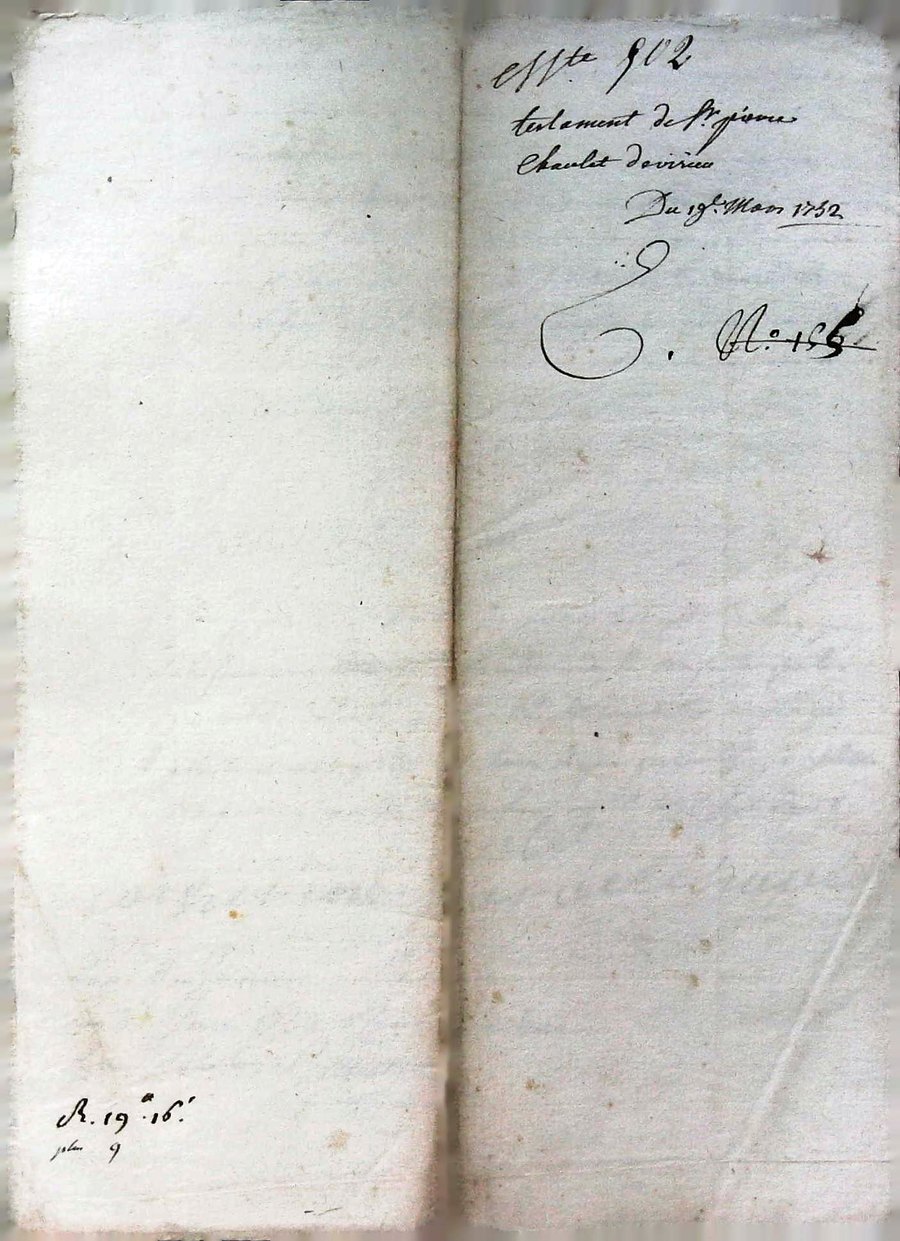 902
testament de Sr. pierre
Chaulet devirieu
Du 19e. Mars 1752
N.o 155
R. 19 . 16
plus 9